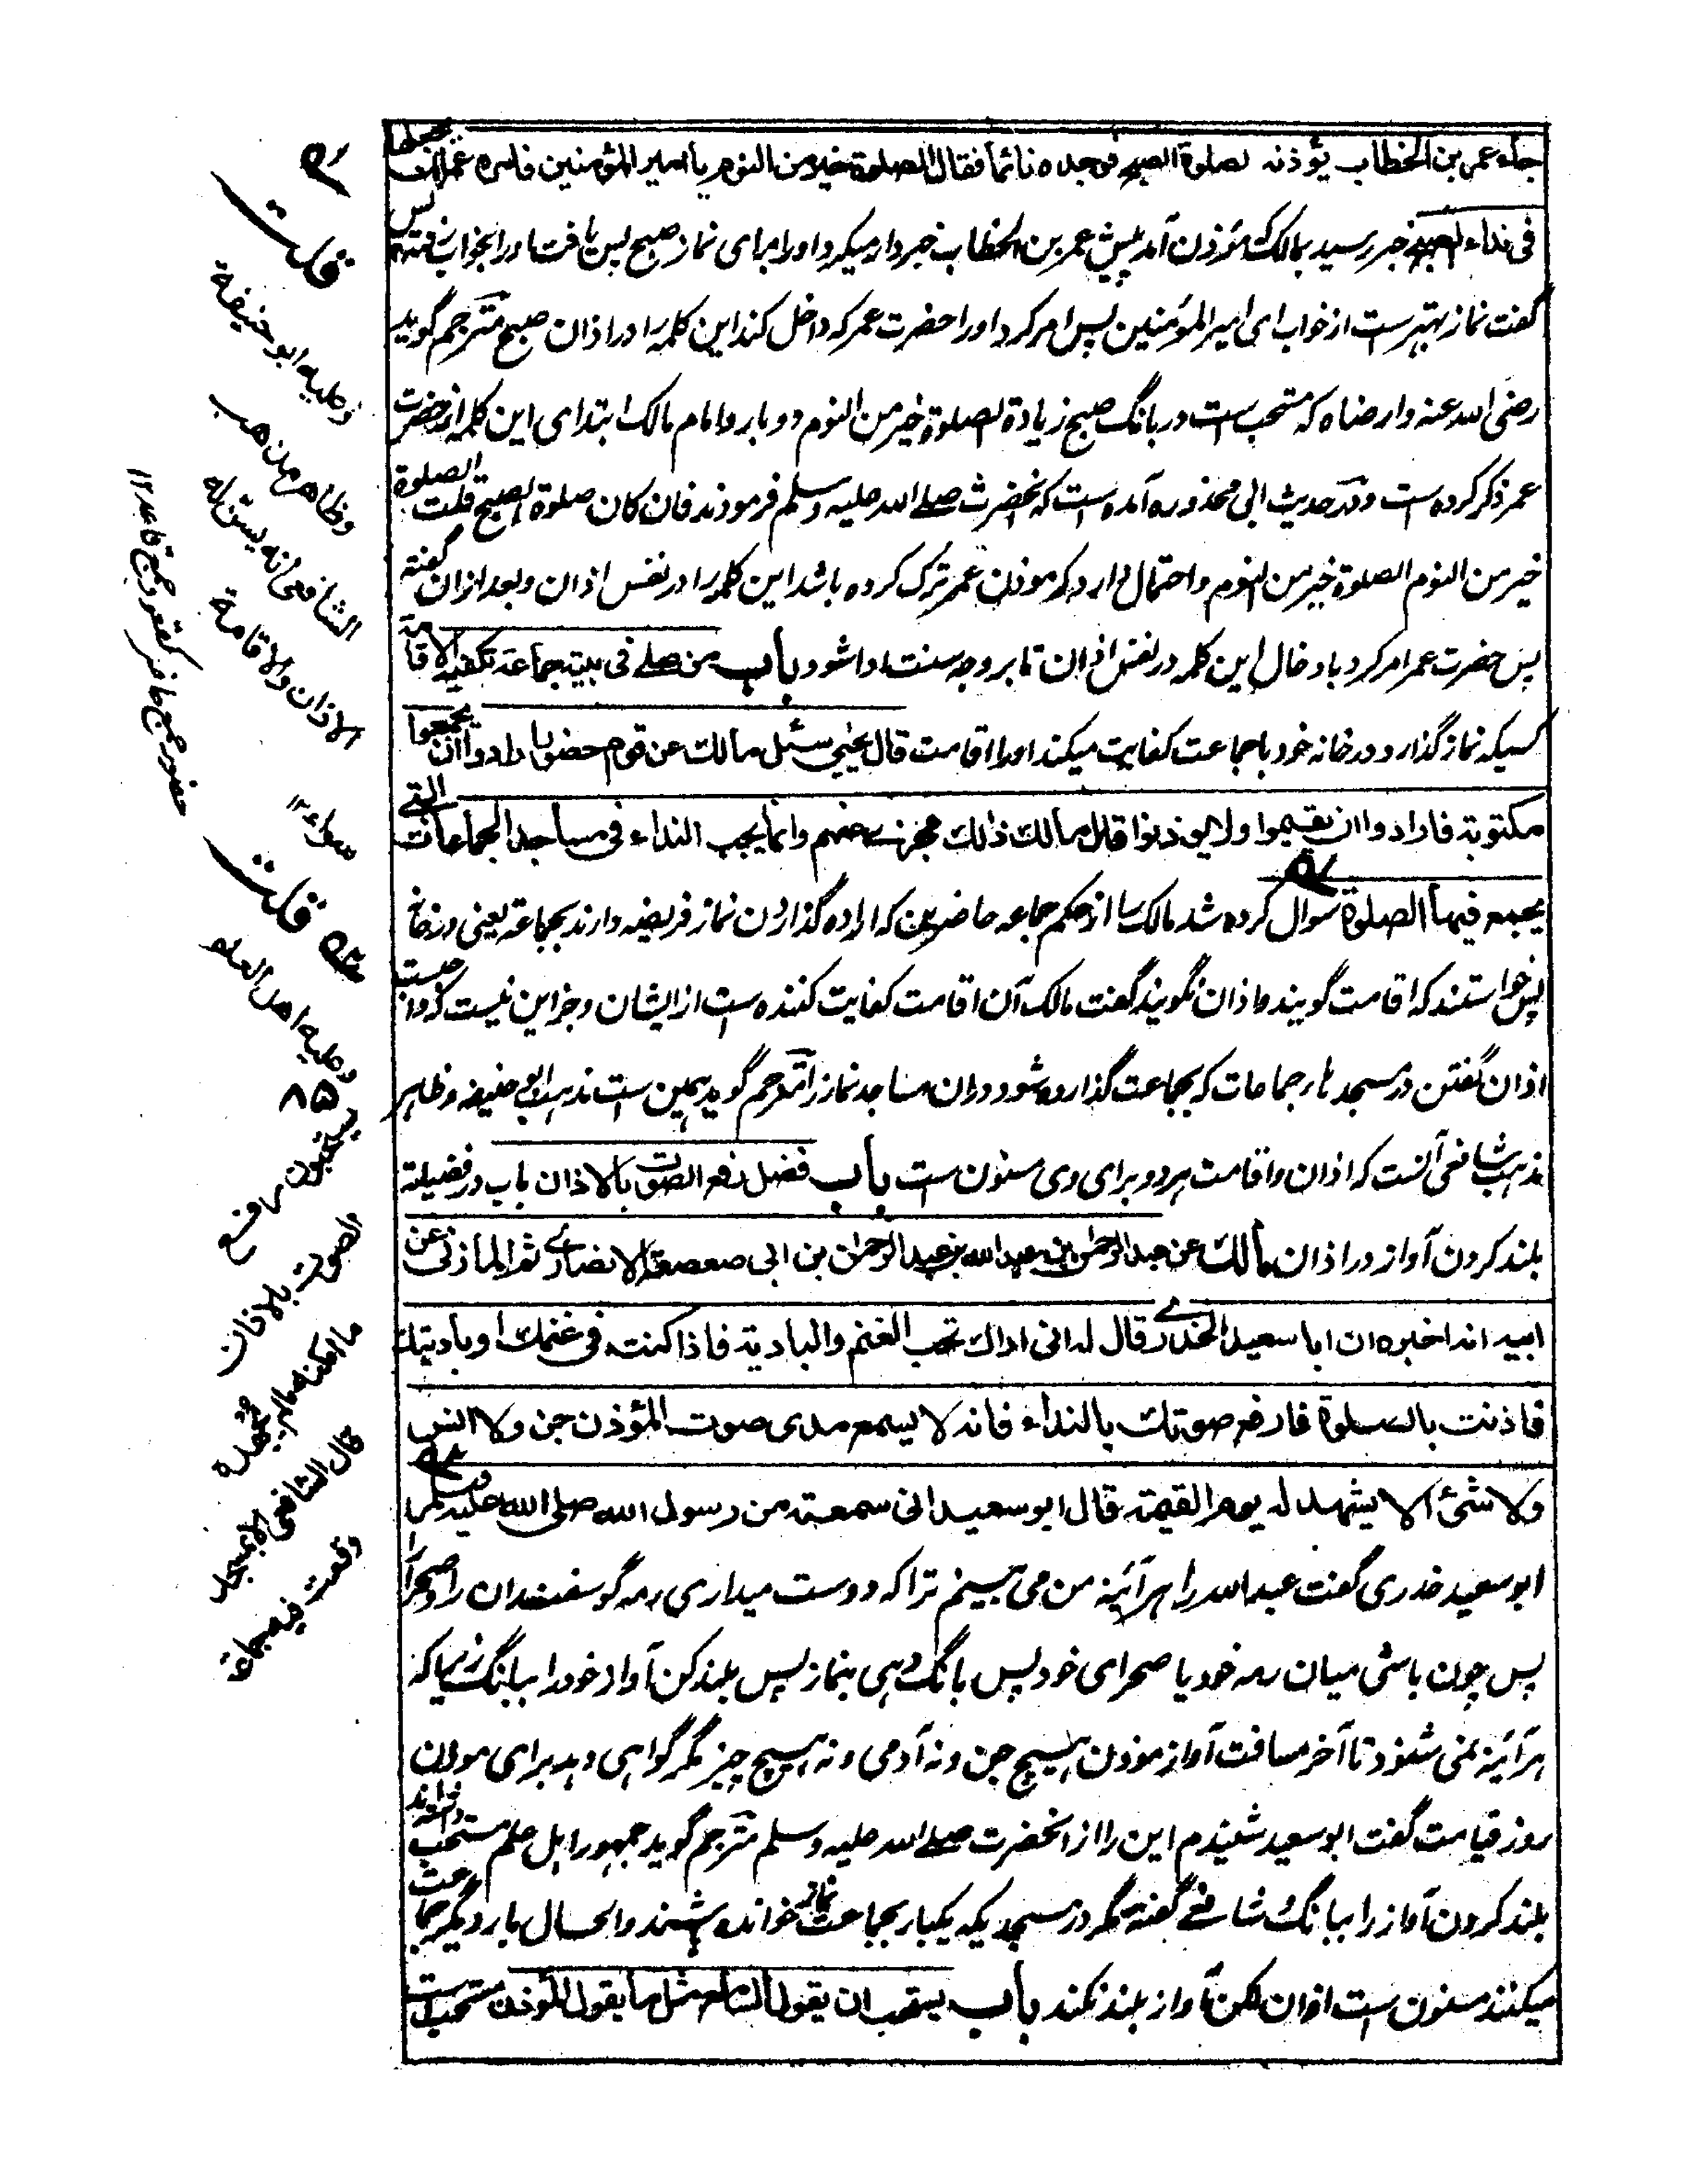 جاء عمر بن الخطاب يؤذنه لصلوة الصبح فوجده نائما فقال الصلوة خير من النوم يا امير المؤمنين فامره عمر ان يجعلها
فى نداء الصبح خبر رسيد بمالك كه مؤذن آمد پيش عمر بن الخطاب خبردار ميكرد اورا براى نماز صبح پس يافت اورا بخواب رفته پس
گفت نماز بهتر ست از خواب اى امير المؤمنين پس امر كرد اورا حضرت عمر كه داخل كند اين كلمه را در اذان صبح مترجم گويد
رضى الله عنه وارضاه كه مستحب ست در بانگ صبح زيادة الصلوة خير من النوم دو بار و امام مالك ابتداى اين كلمه از حضرت
عمر ذكر كرده ست و در حديث ابى محذوره آمده ست كه آنحضرت صلے الله عليه وسلم فرمودند فان كان صلوة الصبح قلت الصلوة
خير من النوم الصلوة خير من النوم و احتمال دارد كه موذن عمر ترك كرده باشد اين كلمه را در نفس اذان و بعد ازان گفته
پس حضرت عمر امر كرد بادخال اين كلمه در نفس اذان تا بر وجه سنت ادا شود باب من صلے فى بيته جماعة تكفيه الاقامة
كسيكه نماز گذارد در خانه خود با جماعت كفايت ميكند اورا اقامت قال يحيى سئل مالك عن قوم حضور ارادوا ان يجمعوا
مكتوبة فارادوا ان يقيموا ولا يوذنوا قال مالك ذلك مجزئ عنهم وانما يجب النداء فى مساجد الجماعات التى
يجمع فيها الصلوة سوال كرده شد مالك را از حكم جماعه حاضرين كه اراده گذاردن نماز فريضه دارند بجماعة يعنى در خانه
پس خواستند كه اقامت گويند و اذان نگويند گفت مالك آن اقامت كفايت كننده ست از ايشان و جز اين نيست كه واجب ست
اذان گفتن در مسجدهاى جماعات كه بجماعت گذارده شود دران مساجد نماز را مترجم گويد همين ست مذهب ابو حنيفه و ظاهر
مذهب شافعى آنست كه اذان و اقامت هر دو براى وى مسنون ست باب فضل رفع الصوت بالاذان باب در فضيلة
بلند كردن آواز در اذان مالك عن عبد الرحمن بن عبد الله بن عبد الرحمن بن ابى صعصعة الانصارى ثم المازنى عن
ابيه انه اخبره ان ابا سعيد الخدرى قال له انى اراك تحب الغنم والبادية فاذا كنت فى غنمك او باديتك
فاذنت بالصلوة فارفع صوتك بالنداء فانه لا يسمع مدى صوت المؤذن جن ولا انس
ولا شئ الا يشهد له يوم القيمة قال ابو سعيد انى سمعته من رسول الله صلى الله عليه وسلم
ابو سعيد خدرى گفت عبد الله را هر آئينه من مى بينم ترا كه دوست ميدارى رمه گوسفندان را و صحرا را
پس چون باشى ميان رمه خود يا صحراى خود پس بانگ دهى بنماز پس بلند كن آواز خود را ببانگ زيرا كه
هر آئينه نمى شنود تا آخر مسافت آواز موذن هيچ جن و نه آدمى و نه هيچ چيز مگر گواهى دهد براى موذن
روز قيامت گفت ابو سعيد شنيدم اين را از آنحضرت صلے الله عليه وسلم مترجم گويد جمهور اهل علم مستحب دانسته اند
بلند كردن آواز را ببانگ شافعے گفته مگر در مسجديكه يكبار بجماعت نماز خوانده باشند و الحال بار ديگر جماعت
ميكنند مسنون ست اذان لكن آواز بلند نكند باب يستحب ان يقول السامع مثل ما يقول المؤذن مستحب ست
قلت
وعليه ابو حنيفة
وظاهر مذهب
الشافعى انه يسن له
الاذان والاقامة
سواء ١٢
حضور جمع حاضر كقعود جمع قاعد ١٢
قلت
وعليه اهل العلم
يستحبون رفع
الصوت بالاذان
ما امكنه ما لم يجهده
قال الشافعى الا بمسجد
وقعت فيه جماعة